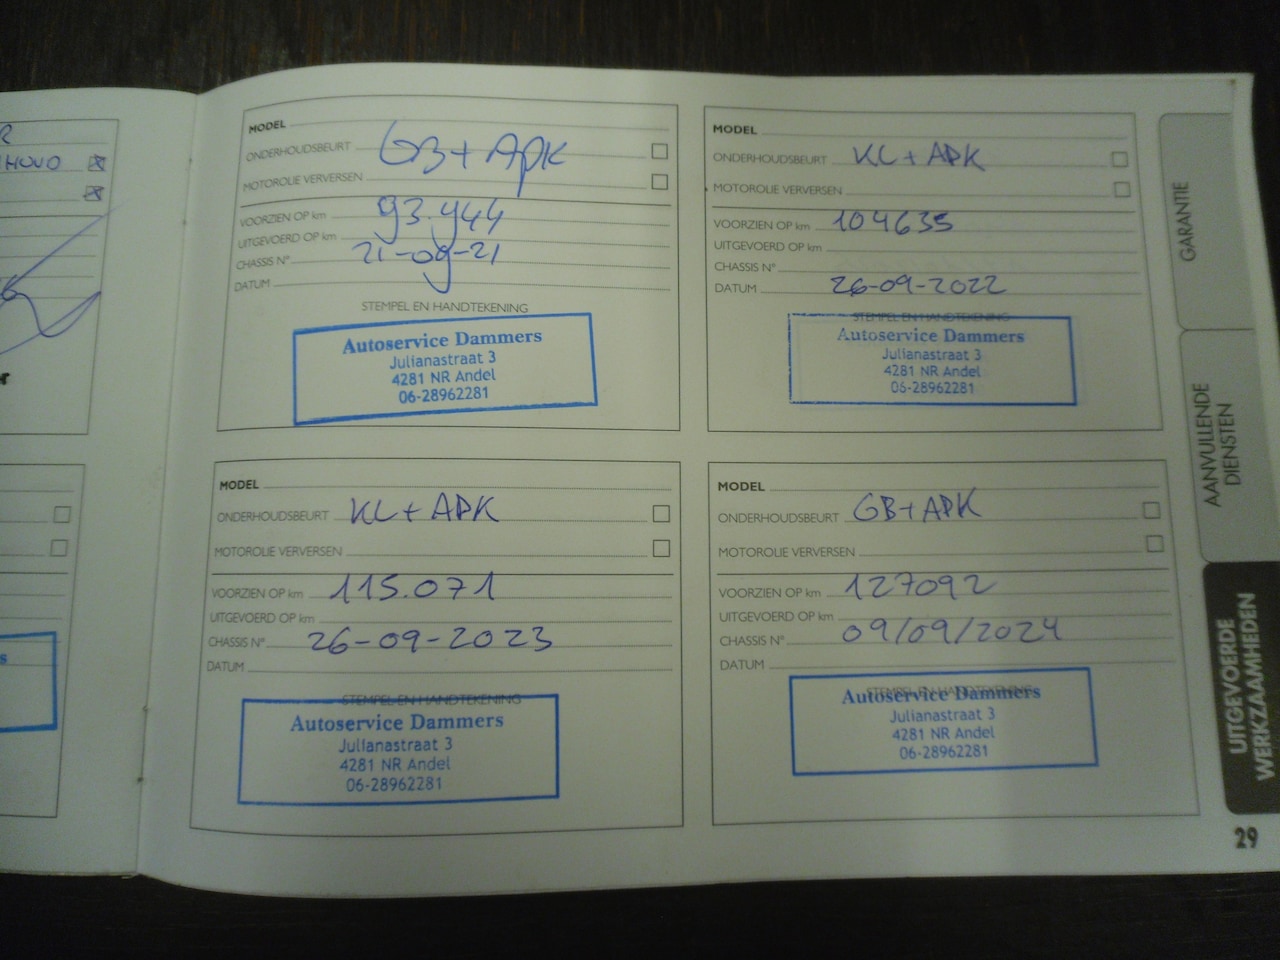 R
HOUD
MODEL
ONDERHOUDSBEURT GB + APK
MOTOROLIE VERVERSEN
VOORZIEN OP km 93.944
UITGEVOERD OP km
CHASSIS N° 21-09-21
DATUM
STEMPEL EN HANDTEKENING
Autoservice Dammers
Julianastraat 3
4281 NR Andel
06-28962281
MODEL
ONDERHOUDSBEURT KL + APK
MOTOROLIE VERVERSEN
VOORZIEN OP km 104635
UITGEVOERD OP km
CHASSIS N°
DATUM 26-09-2022
STEMPEL EN HANDTEKENING
Autoservice Dammers
Julianastraat 3
4281 NR Andel
06-28962281
MODEL
ONDERHOUDSBEURT KL + APK
MOTOROLIE VERVERSEN
VOORZIEN OP km 115.071
UITGEVOERD OP km
CHASSIS N° 26-09-2023
DATUM
STEMPEL EN HANDTEKENING
Autoservice Dammers
Julianastraat 3
4281 NR Andel
06-28962281
MODEL
ONDERHOUDSBEURT GB + APK
MOTOROLIE VERVERSEN
VOORZIEN OP km 127092
UITGEVOERD OP km
CHASSIS N° 09/09/2024
DATUM
STEMPEL EN HANDTEKENING
Autoservice Dammers
Julianastraat 3
4281 NR Andel
06-28962281
GARANTIE
AANVULLENDE
DIENSTEN
UITGEVOERDE
WERKZAAMHEDEN
29